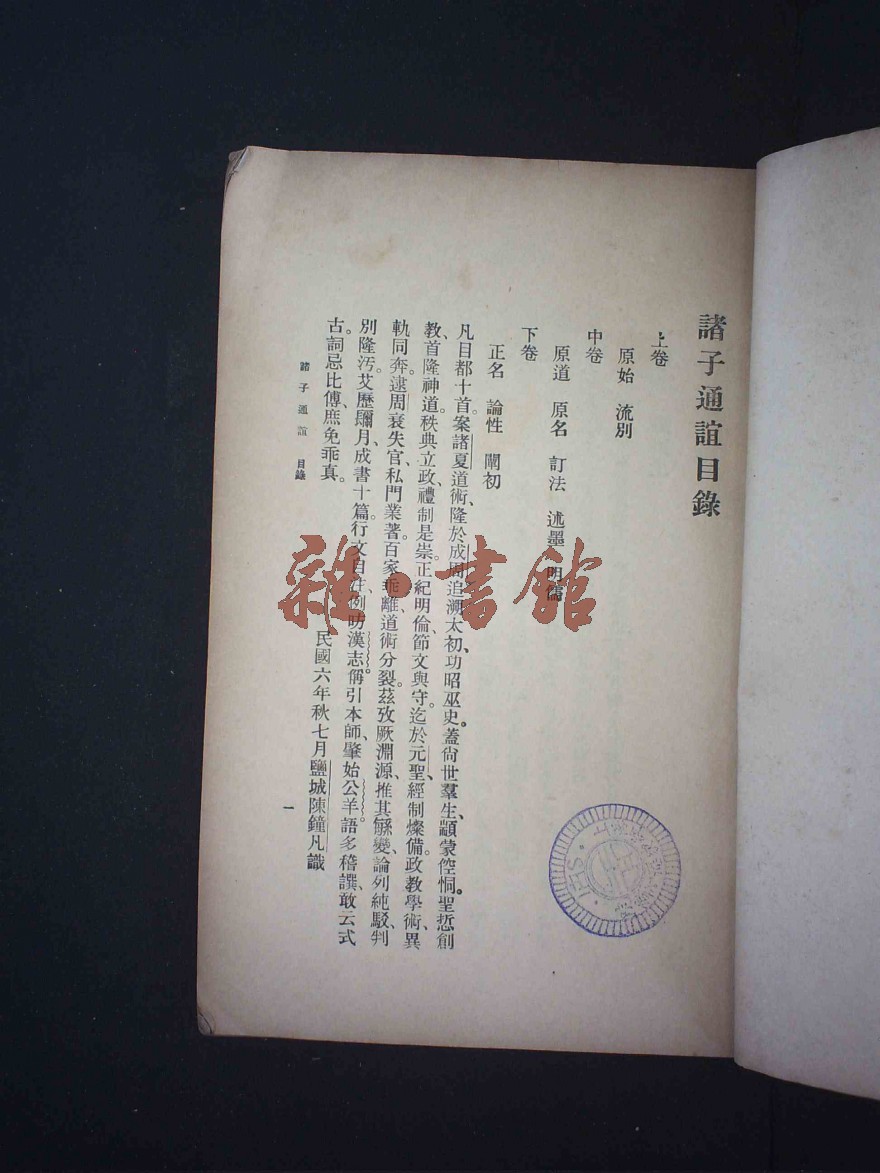 諸子通誼目錄
上卷
原始 流別
中卷
原道 原名 訂法 述墨 明儒
下卷
正名 論性 闡初
凡目都十首。案諸夏道術、隆於成周、追溯太初、功昭巫史。蓋尙世羣生、顓蒙倥恫。聖哲創
教、首隆神道。秩典立政、禮制是崇。正紀明倫、節文與守。迄於元聖、經制燦備。政教學術、異
軌同奔。逮周衰失官、私門業著。百家乖離、道術分裂。茲攷厥淵源、推其繇變、論列純駁、判
別隆污。艾歷彌月、成書十篇。行文自注、例昉漢志。偁引本師、肇始公羊。語多稽譔、敢云式
古。詞忌比傅、庶免乖真。
民國六年秋七月鹽城陳鐘凡識
諸子通誼 目錄
一
雜·書館